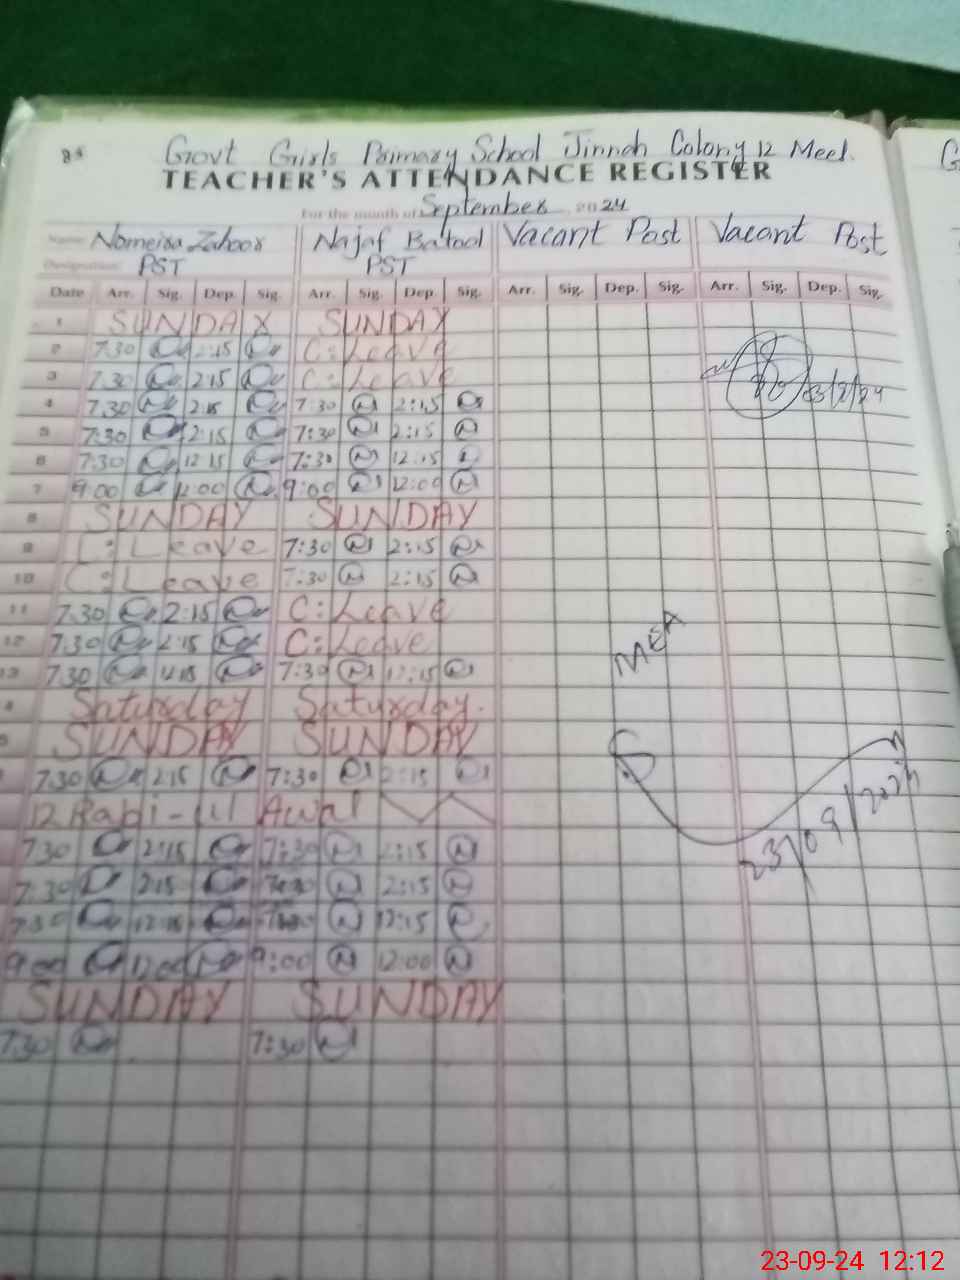 Govt Girls Primary School Jinnah Colony 12 Meel.
TEACHER'S ATTENDANCE REGISTER
For the month of September, 2024
Name Nomeira Zahoor Najaf Batool Vacant Post Vacant Post
Designation PST PST
Date Arr. Sig. Dep. Sig. Arr. Sig. Dep. Sig. Arr. Sig. Dep. Sig. Arr. Sig. Dep. Sig.
1 SUNDAY SUNDAY
2 7.30 2:15 C:Leave
3 7.30 2:15 C:Leave
4 7.30 2:15 7:30 2:15
5 7:30 2:15 7:30 2:15
6 7:30 12:15 7:30 12:15
7 9:00 12:00 9:00 12:00
8 SUNDAY SUNDAY
9 C:Leave 7:30 2:15
10 C:Leave 7:30 2:15
11 7.30 2:15 C:Leave
12 7:30 2:15 C:Leave
13 7:30 12:15 7:30 12:15
Saturday Saturday.
SUNDAY SUNDAY
7.30 2:15 7:30 2:15
12 Rabi-ul Awal
7.30 2:15 7:30 2:15
7:30 2:15 7:30 2:15
7:30 12:15 12:15
9:00 12:00 9:00 12:00
SUNDAY SUNDAY
7.30 7:30
MEA
23/09/2024
23-09-24 12:12